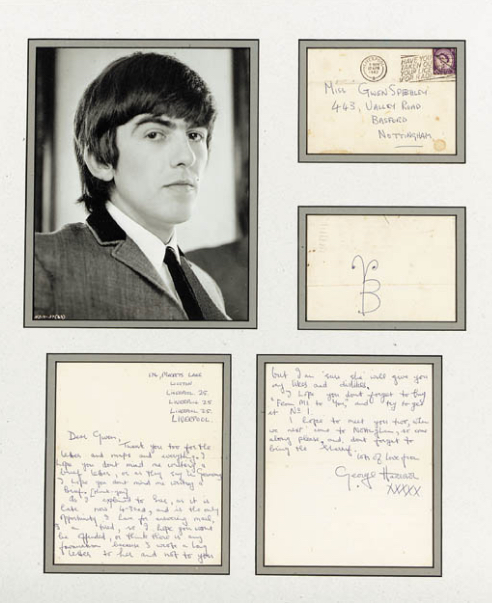 HAVE YOU
TAKEN OUT
YOUR LICENCE
FOR RADIO
Miss Gwen Speedley
443, Valley Road
Basford
Nottingham
B
Mackets Lane
Liverpool 25.
Liverpool 25.
Liverpool 25.
Liverpool.
Dear Gwen,
Thank you too for the
letter and maps and everything, I
hope you dont mind me writing a
brief letter, or as they say in Germany
I hope you dont mind me writing a
Brief.
As I explained to Sue, as it is
late now and is the only
opportunity I have for answering mail,
I'm tired, so I hope you wont
be offended, or think there is any
favouritism because I wrote a long
letter to her and not to you
but I'm sure she will give you
my likes and dislikes.
I hope you dont forget to buy
"From Me to You," and try to get
it No 1.
I hope to meet you too, when
we next come to Nottingham, so come
along please, and, dont forget to
bring the
lots of love from
George Harrison
XXXXX